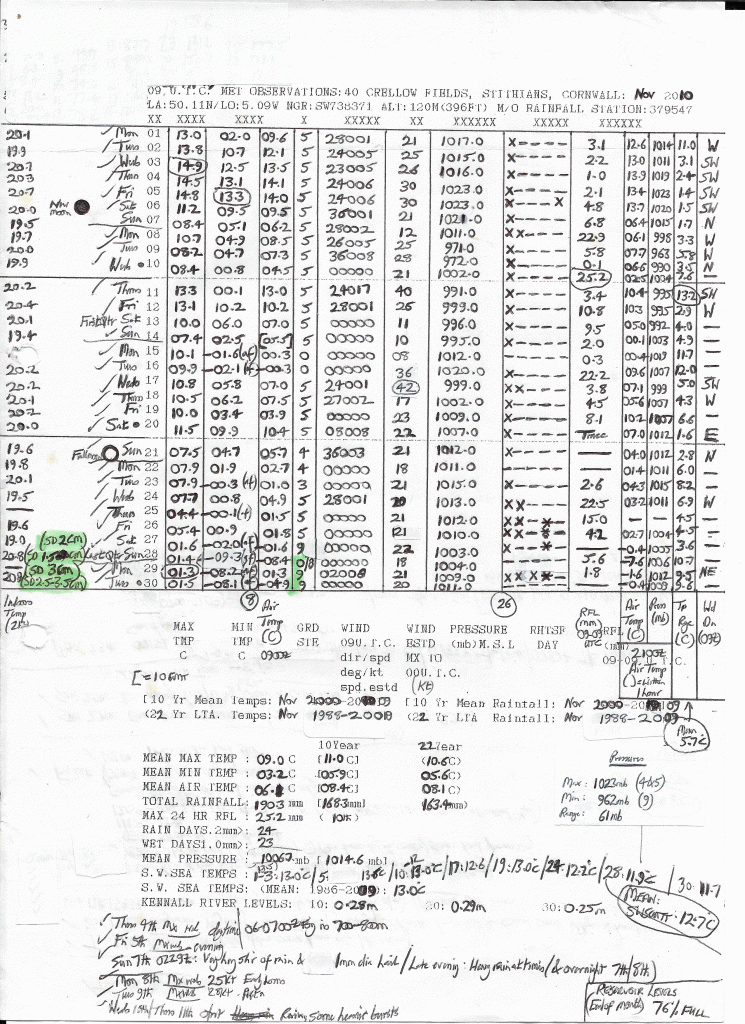 09.U.T.C. MET OBSERVATIONS:40 CRELLOW FIELDS, STITHIANS, CORNWALL: Nov 2010
LA:50.11N/LO:5.09W NGR:SW738371 ALT:120M(396FT) M/O RAINFALL STATION:379547
XX XXXX XXXX XX X XXXXX XX XXXXXX XXXXX XXXXX
20.1 Mon 01 13.0 02.0 09.6 5 28001 21 1017.0 X---- 3.1 12.6 1014 11.0 W
19.9 Tues 02 13.8 10.7 12.1 5 24005 25 1015.0 X---- 2.2 13.0 1011 3.1 SW
20.7 Wed 03 14.9 12.5 13.5 5 23005 26 1016.0 X---- 1.0 13.9 1019 2.4 SW
20.3 Thurs 04 14.5 13.1 14.1 5 24006 30 1023.0 X---- 2.1 13.4 1023 1.4 SW
20.7 Fri 05 14.8 13.3 14.0 5 24006 30 1023.0 X---X 4.8 13.7 1020 1.5 SW
20.0 New moon Sat 06 11.2 09.5 09.5 5 36001 21 1021.0 X---- 6.8 06.4 1015 1.7 N
19.5 Sun 07 08.4 05.1 06.2 5 28002 12 1011.0 XX--- 22.9 06.1 998 3.3 W
19.7 Mon 08 10.7 04.9 08.5 5 26005 25 971.0 X---- 5.8 07.7 963 5.8 W
20.0 Tues 09 08.2 04.7 07.3 5 36008 28 972.0 X---- 0.1 06.6 990 3.5 N
19.9 Wed 10 08.4 00.8 04.5 5 00000 21 1002.0 X---- 25.2 02.5 1004 7.6 -
20.2 Thurs 11 13.3 00.1 13.0 5 24017 40 991.0 X---- 3.4 10.4 995 13.2 SW
20.4 Fri 12 13.1 10.2 10.2 5 28001 26 999.0 X---- 10.8 10.3 995 2.9 W
20.1 First Qtr Sat 13 10.0 06.0 07.0 5 00000 11 996.0 X---- 9.5 05.0 992 4.0 -
19.4 Sun 14 07.4 02.5 [05.5] 5 00000 10 995.0 X---- 2.0 00.1 1003 4.9 -
Mon 15 10.1 -01.6(gf) 00.3 0 00000 08 1012.0 X---- 0.3 00.4 1019 11.7 -
20.2 Tues 16 09.9 -02.1(gf) -00.3 0 00000 36 1020.0 X---- 22.2 09.6 1007 12.0 -
20.2 Wed 17 10.8 05.8 07.0 5 24001 42 999.0 XX--- 3.8 07.1 999 5.0 SW
20.1 Thurs 18 10.5 06.2 07.5 5 27002 17 1002.0 X---- 4.5 05.6 1007 4.3 W
20.2 Fri 19 10.0 03.4 03.9 5 00000 23 1009.0 X---- 8.1 10.2 1007 6.6 -
20.0 Sat 20 11.5 09.9 10.4 5 08008 22 1007.0 X---- Trace 07.0 1012 1.6 E
19.6 Full moon Sun 21 07.5 04.7 05.7 4 36003 21 1012.0 X---- — 04.0 1012 2.8 N
19.8 Mon 22 07.9 01.9 02.7 4 00000 18 1011.0 ----- — 01.4 1011 6.0 -
20.1 Tues 23 07.9 -00.3(gf) 01.0 3 00000 21 1015.0 X---- 2.6 04.3 1015 8.2 -
19.5 Wed 24 07.7 00.8 04.9 5 28001 20 1013.0 XX--- 22.5 03.2 1011 6.9 W
Thurs 25 04.4 -00.1(gf) 5 00000 21 1012.0 XX-X- 15.0 4.5
19.6 Fri 26 05.4 00.9 01.8 5 00000 1010.0 4.2 02.7 1004 4.5
19.0 SD 2cm Sat 27 01.6 -02.0 -01.6 9 00000 22 1003.0 3.6
20.8 Last Qtr Sun 28 01.4 -09.3 -08.4 0/8 00000 18 1004.0 5.6 1006 10.7
SD 3cm Mon 29 01.3 -08.2 01.3 9 02008 21 1009.0 XXXX- 1.8 1012 9.5 NE
20.8 SD 2.5-3.5cm Tues 30 01.5 -08.1 -04.9 9 00000 20 1011.0 9.6
Indoors Temp (21z) 8 Air Temp (C) 0900z 26 RFL (mm) 09-09 UTC Air Temp (C) Press (mb) Tp Rge (C) Wd Dn (09z)
MAX MIN GRD WIND WIND PRESSURE RHTSF RFL
TMP TMP STE 09U.T.C. ESTD (mb)M.S.L DAY (mm)
C C dir/spd MX TO 09-09.U.T.C.
deg/kt 00U.T.C.
spd.estd (kt)
2100z Air Temp ()=Within 1 hour
[10 Yr Mean Temps: Nov 2000-2009 [10 Yr Mean Rainfall: Nov 2000-2009
(22 Yr LTA. Temps: Nov 1988-2009 (22 Yr LTA Rainfall: Nov 1988-2009
Mean 5.7°C
10Year 22Year
MEAN MAX TEMP : 09.0 C [11.0 C] (10.6C)
MEAN MIN TEMP : 03.2 C [05.9C] 05.6C)
MEAN AIR TEMP : 06.1 C [08.4C) 08.1C)
TOTAL RAINFALL: 190.3 mm [168.3mm] 163.4mm)
MAX 24 HR RFL : 25.2 mm ( 10th)
RAIN DAYS.2mm>: 24
WET DAYS1.0mm>: 23
MEAN PRESSURE : 1006.7mb [1014.6 mb]
Pressures
Max: 1023mb (4&5)
Min: 962mb (9)
Range: 61mb
S.W.SEA TEMPS : 1-3:13.0°C/5: 13.6°C/10:13.0°C/17:12.6/19:13.0°C/24:12.2°C/28:11.9°C/30:11.7
S.W. SEA TEMPS: (MEAN: 1986-2009): 13.0°C
MEAN: SWSCOTT: 12.7°C
KENNALL RIVER LEVELS: 10: 0.28m 20: 0.29m 30: 0.25m
Thurs 4th Mx wd daytime 06-0700z Vsby in 700-800m
Fri 5th Mx wd evening
Sun 7th 0229z: Vry hvy shr of rain & 1mm dia hail/Late evening: Heavy rain at times/& overnight 7th/8th
Mon 8th Mx wd 25kt Early hours
Tues 9th Mx wd 28kt
Rainy, some heavier bursts
RESERVOIR LEVELS (End of month) 76% FULL